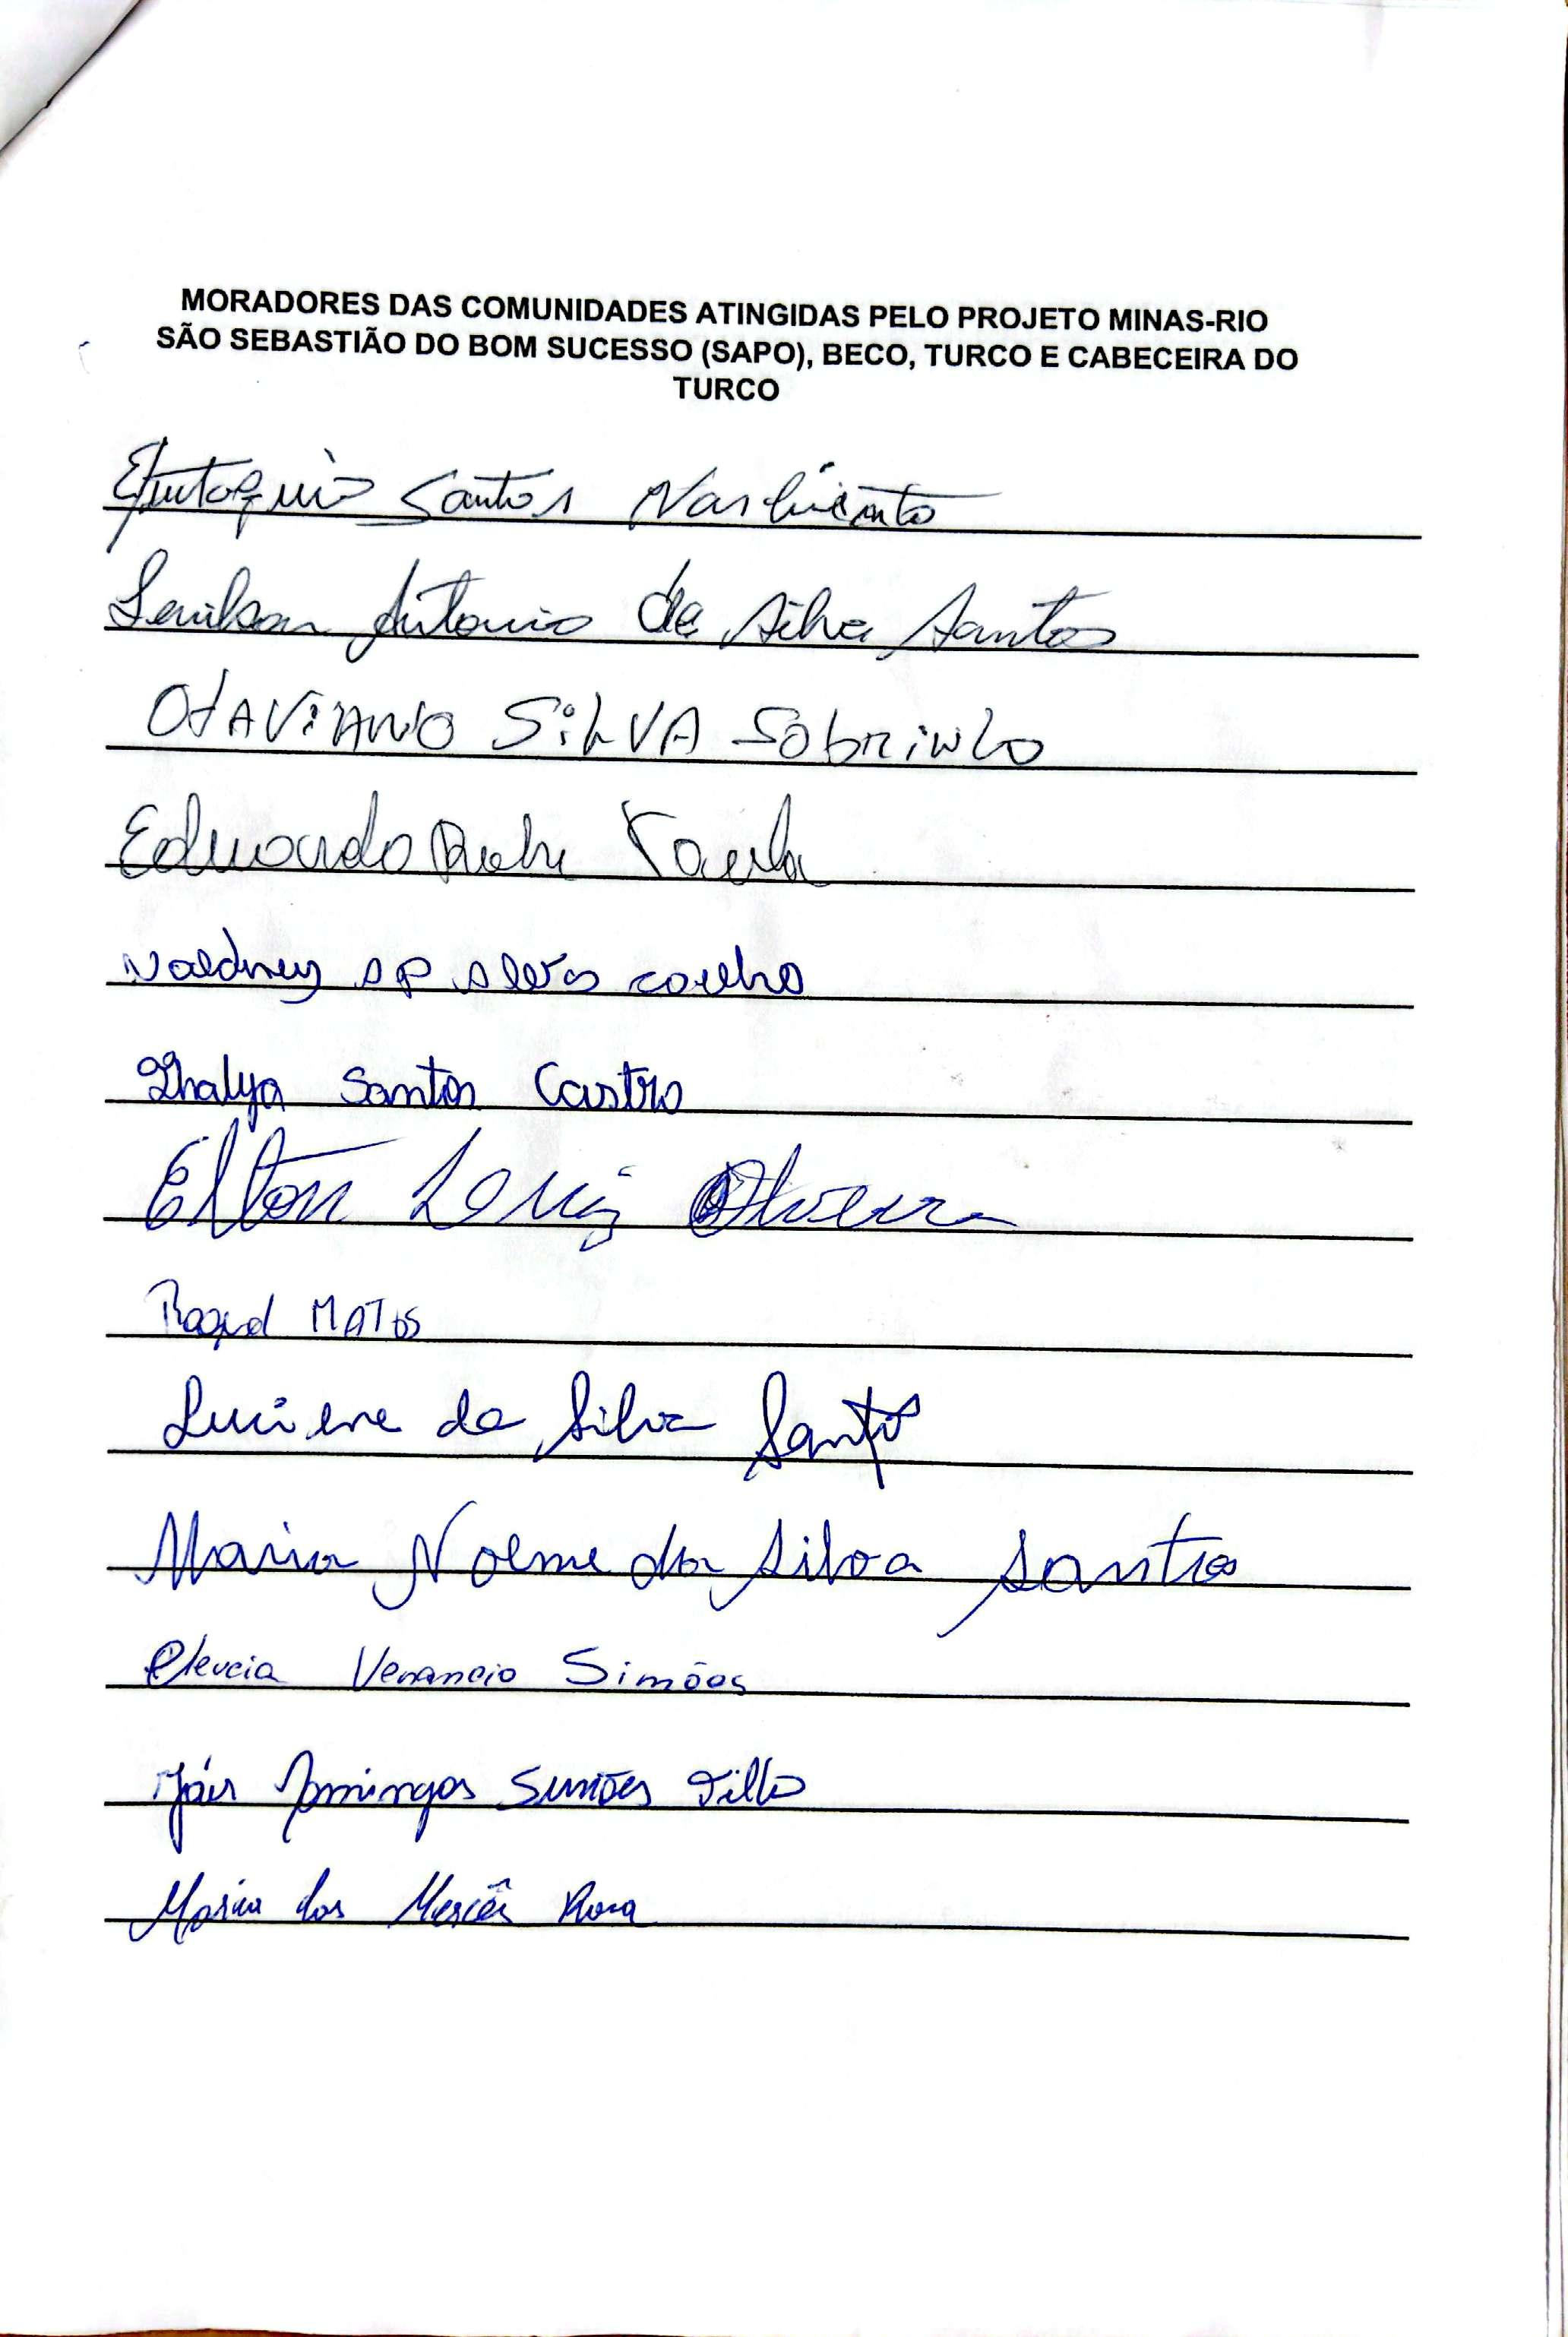 MORADORES DAS COMUNIDADES ATINGIDAS PELO PROJETO MINAS-RIO
SÃO SEBASTIÃO DO BOM SUCESSO (SAPO), BECO, TURCO E CABECEIRA DO
TURCO
Santos Nascimento
Antonio da Silva Santos
OtAViANO SiLVA SobRiNho
Eduardo
AP Alves coelho
Thalya Santos Castro
Elton Luiz Oliveira
Raquel MATOS
Luciene da Silva Santos
Maria Noeme da Silva Santos
Venancio Simões
Jáir Domingos Simões Filho
Maria das Mercês Rosa